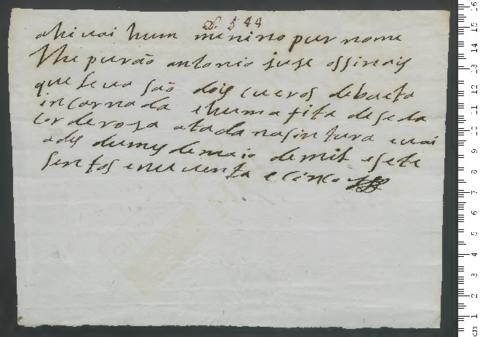 d. 544
ahi vai hum menino por nome
lhe purão antonio juze os sinais
que leva são dois cueros de baeta
incarnada e huma fita de seda
cor de roza atada na sintura e vai
a des do mes de maio de mil e sete
sentos e cincoenta e cinco